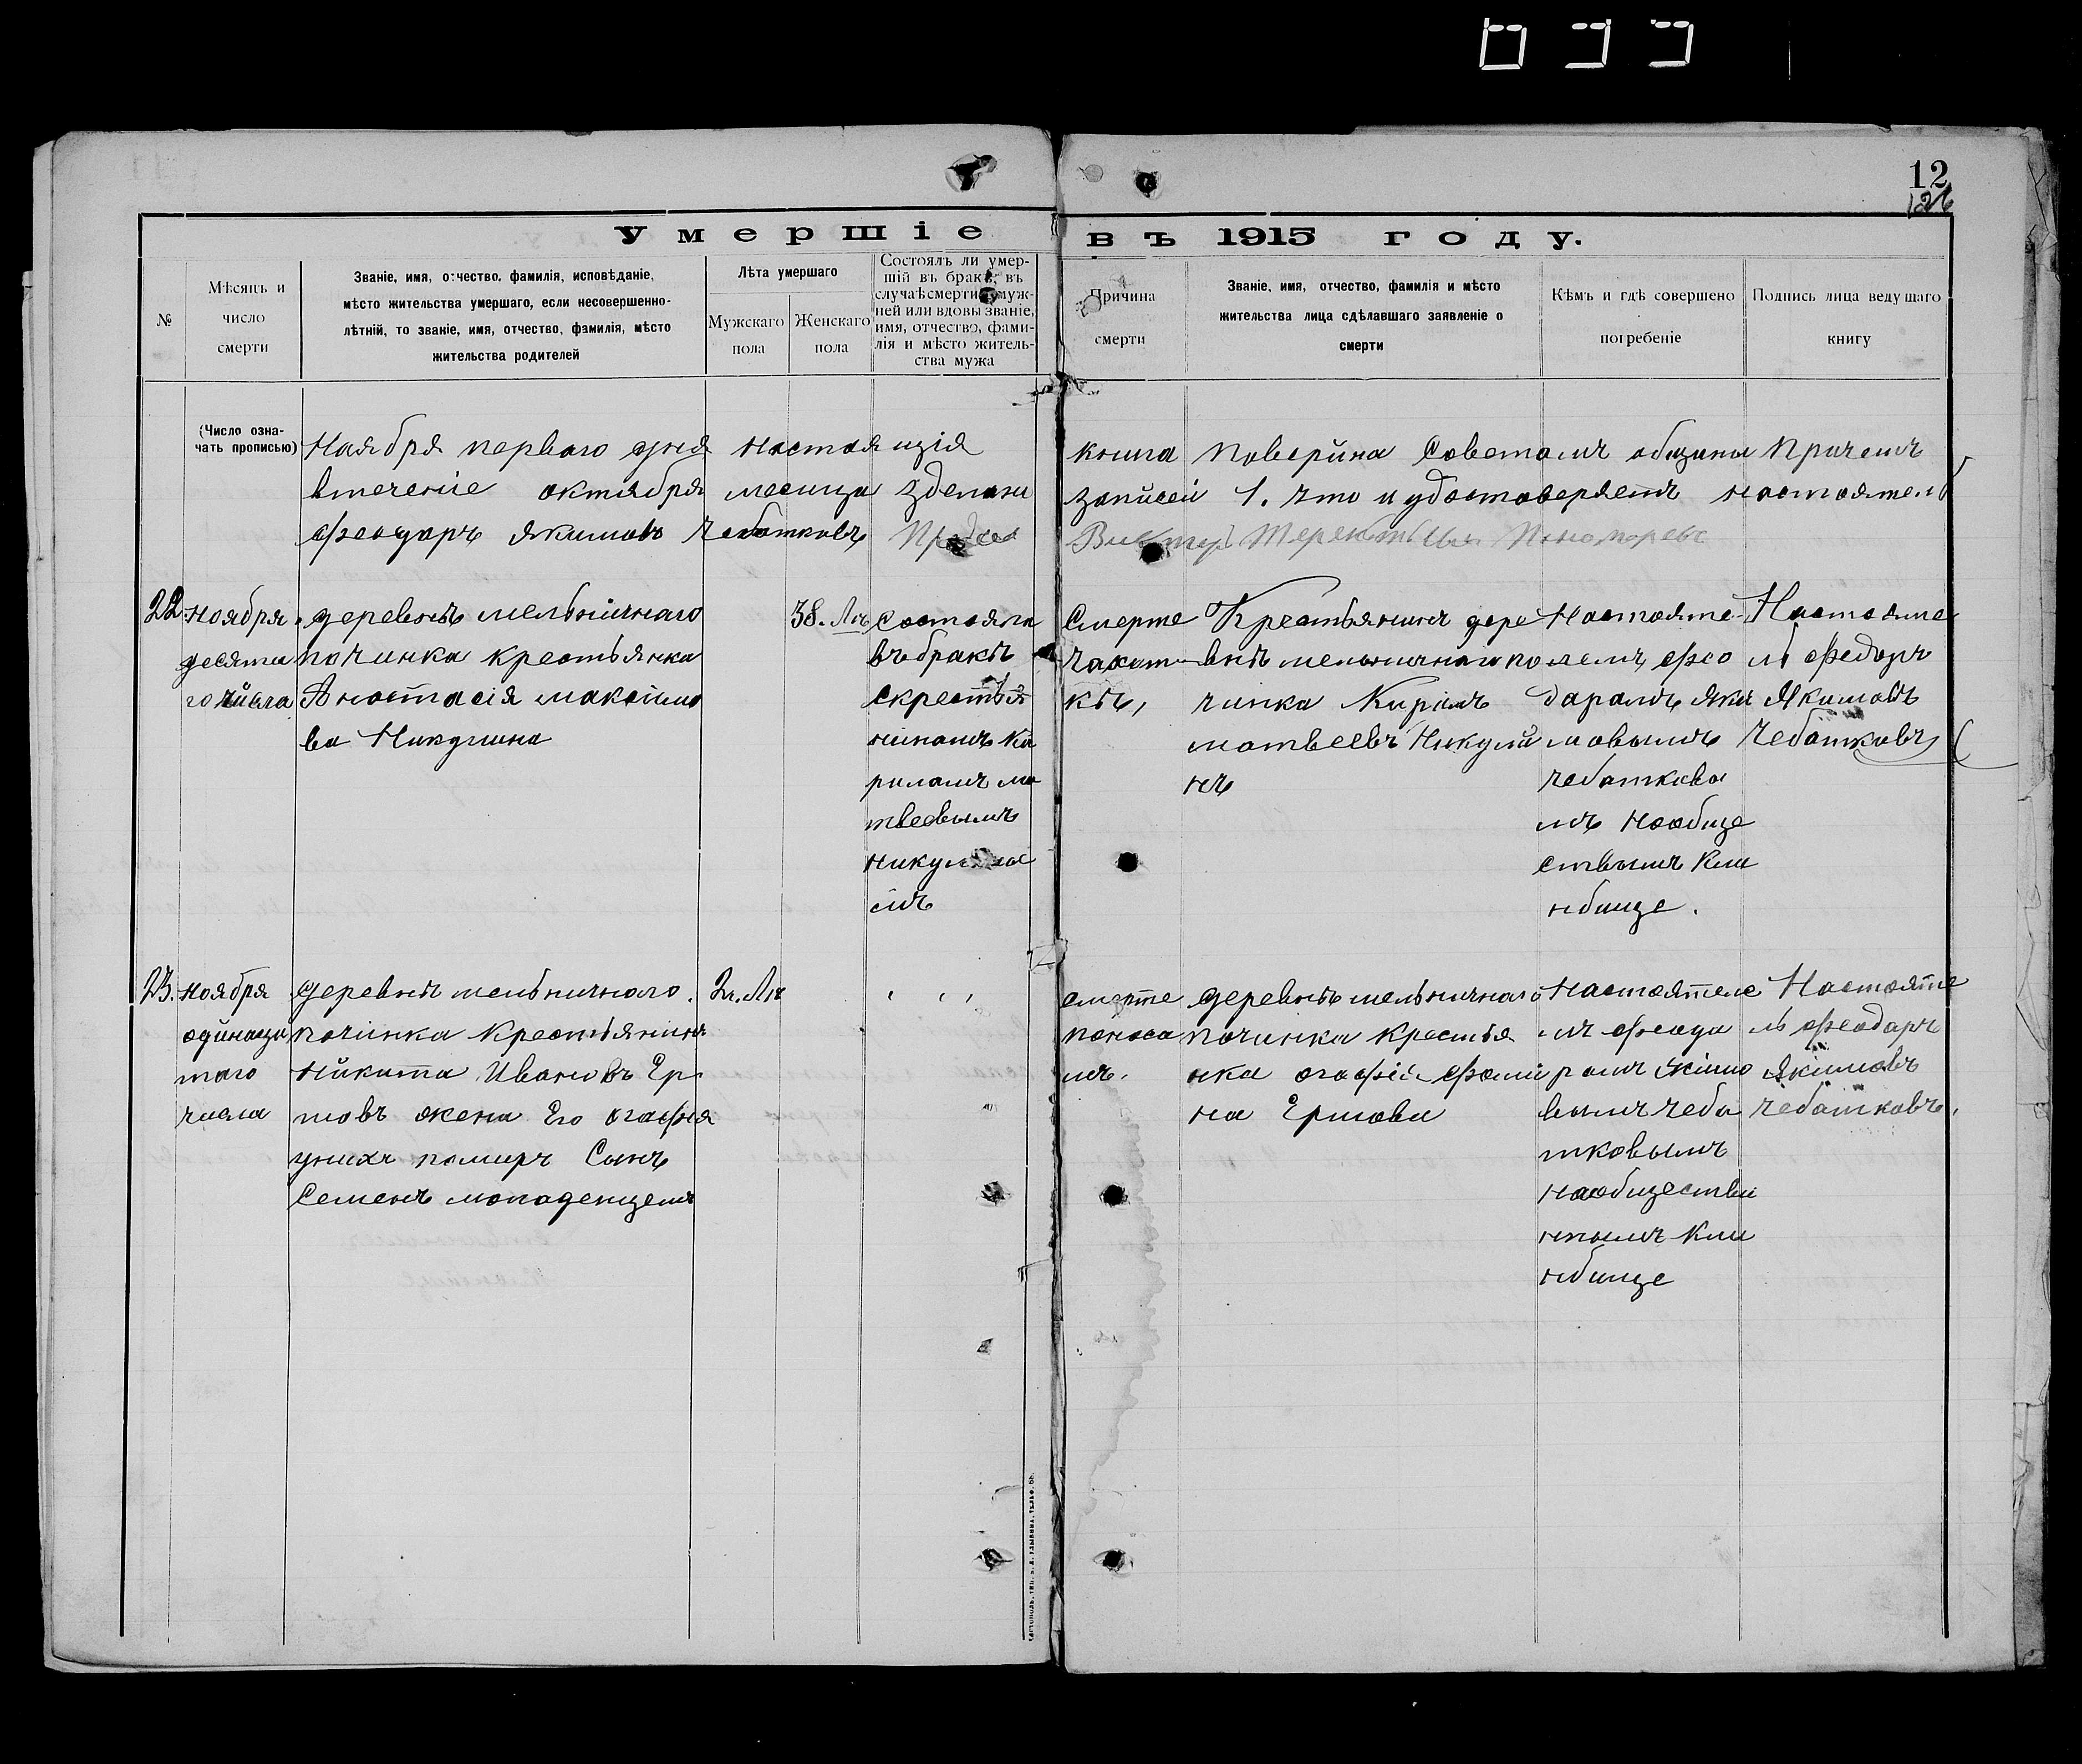 12
126
Умершіе въ 1915 году.
№
Мѣсяцъ и
число
смерти
Званіе, имя, отчество, фамилія, исповѣданіе,
мѣсто жительства умершаго, если несовершенно-
лѣтній, то званіе, имя, отчество, фамилія, мѣсто
жительства родителей
Лѣта умершаго
Мужскаго
пола
Женскаго
пола
Состоялъ ли умер-
шій въ бракѣ; въ
случаѣ смерти муж-
ней или вдовы званіе,
имя, отчество, фами-
лія и мѣсто житель-
ства мужа
Причина
смерти
Званіе, имя, отчество, фамилія и мѣсто
жительства лица сдѣлавшаго заявленіе о
смерти
Кѣмъ и гдѣ совершено
погребеніе
Подпись лица ведущаго
книгу
(Число озна-
чать прописью)
Наября перваго дня настоящія книга поверина Советомъ общины Причемъ
втеченіе октября месица зделани записей 1. что и удостоверяетъ настоятель
Феодоръ Якимовъ Чеботковъ
22
ноября
десята
го числа
деревнѣ мельнічнаго
починка крестьянка
Аностасія максімо
ва Никулина
38. Лѣ
Состояла
въ бракѣ
скрестья
нінамъ Ки
риламъ ма
твеевымъ
імъ
Смерте
чахот
кѣ,
Крестьянинъ дере
внѣ мельничнаго по
чинка Кирилъ
матвеевъ Никули
нъ
Настояте-
лемъ, Фео
дарамъ Яки
мовымъ
чебаткавы
мъ наобще
ствымъ Кла
дбище.
Настояте
ль Федоръ
Якимовъ
Чеботковъ
23.
ноября
одинаца
таго
числа
деревнѣ мельничнаго.
почінка Крестьянінъ
Никита Ивановъ Ер
шовъ жена Его огафія
унихъ помиръ Сынъ
Семенъ моладенцемъ
2л. Лѣ
смерте
поноса
мъ.
деревнѣ мельничнаго
починка крестья
нка огафія Фоми
на Ершова
Настоятеле
мъ Феода
рамъ Якімо
вымъ чеба
тковымъ
наобществи
нымъ Кла
дбище
Настояте
ль Феодаръ
Якімовъ
чебатковъ.